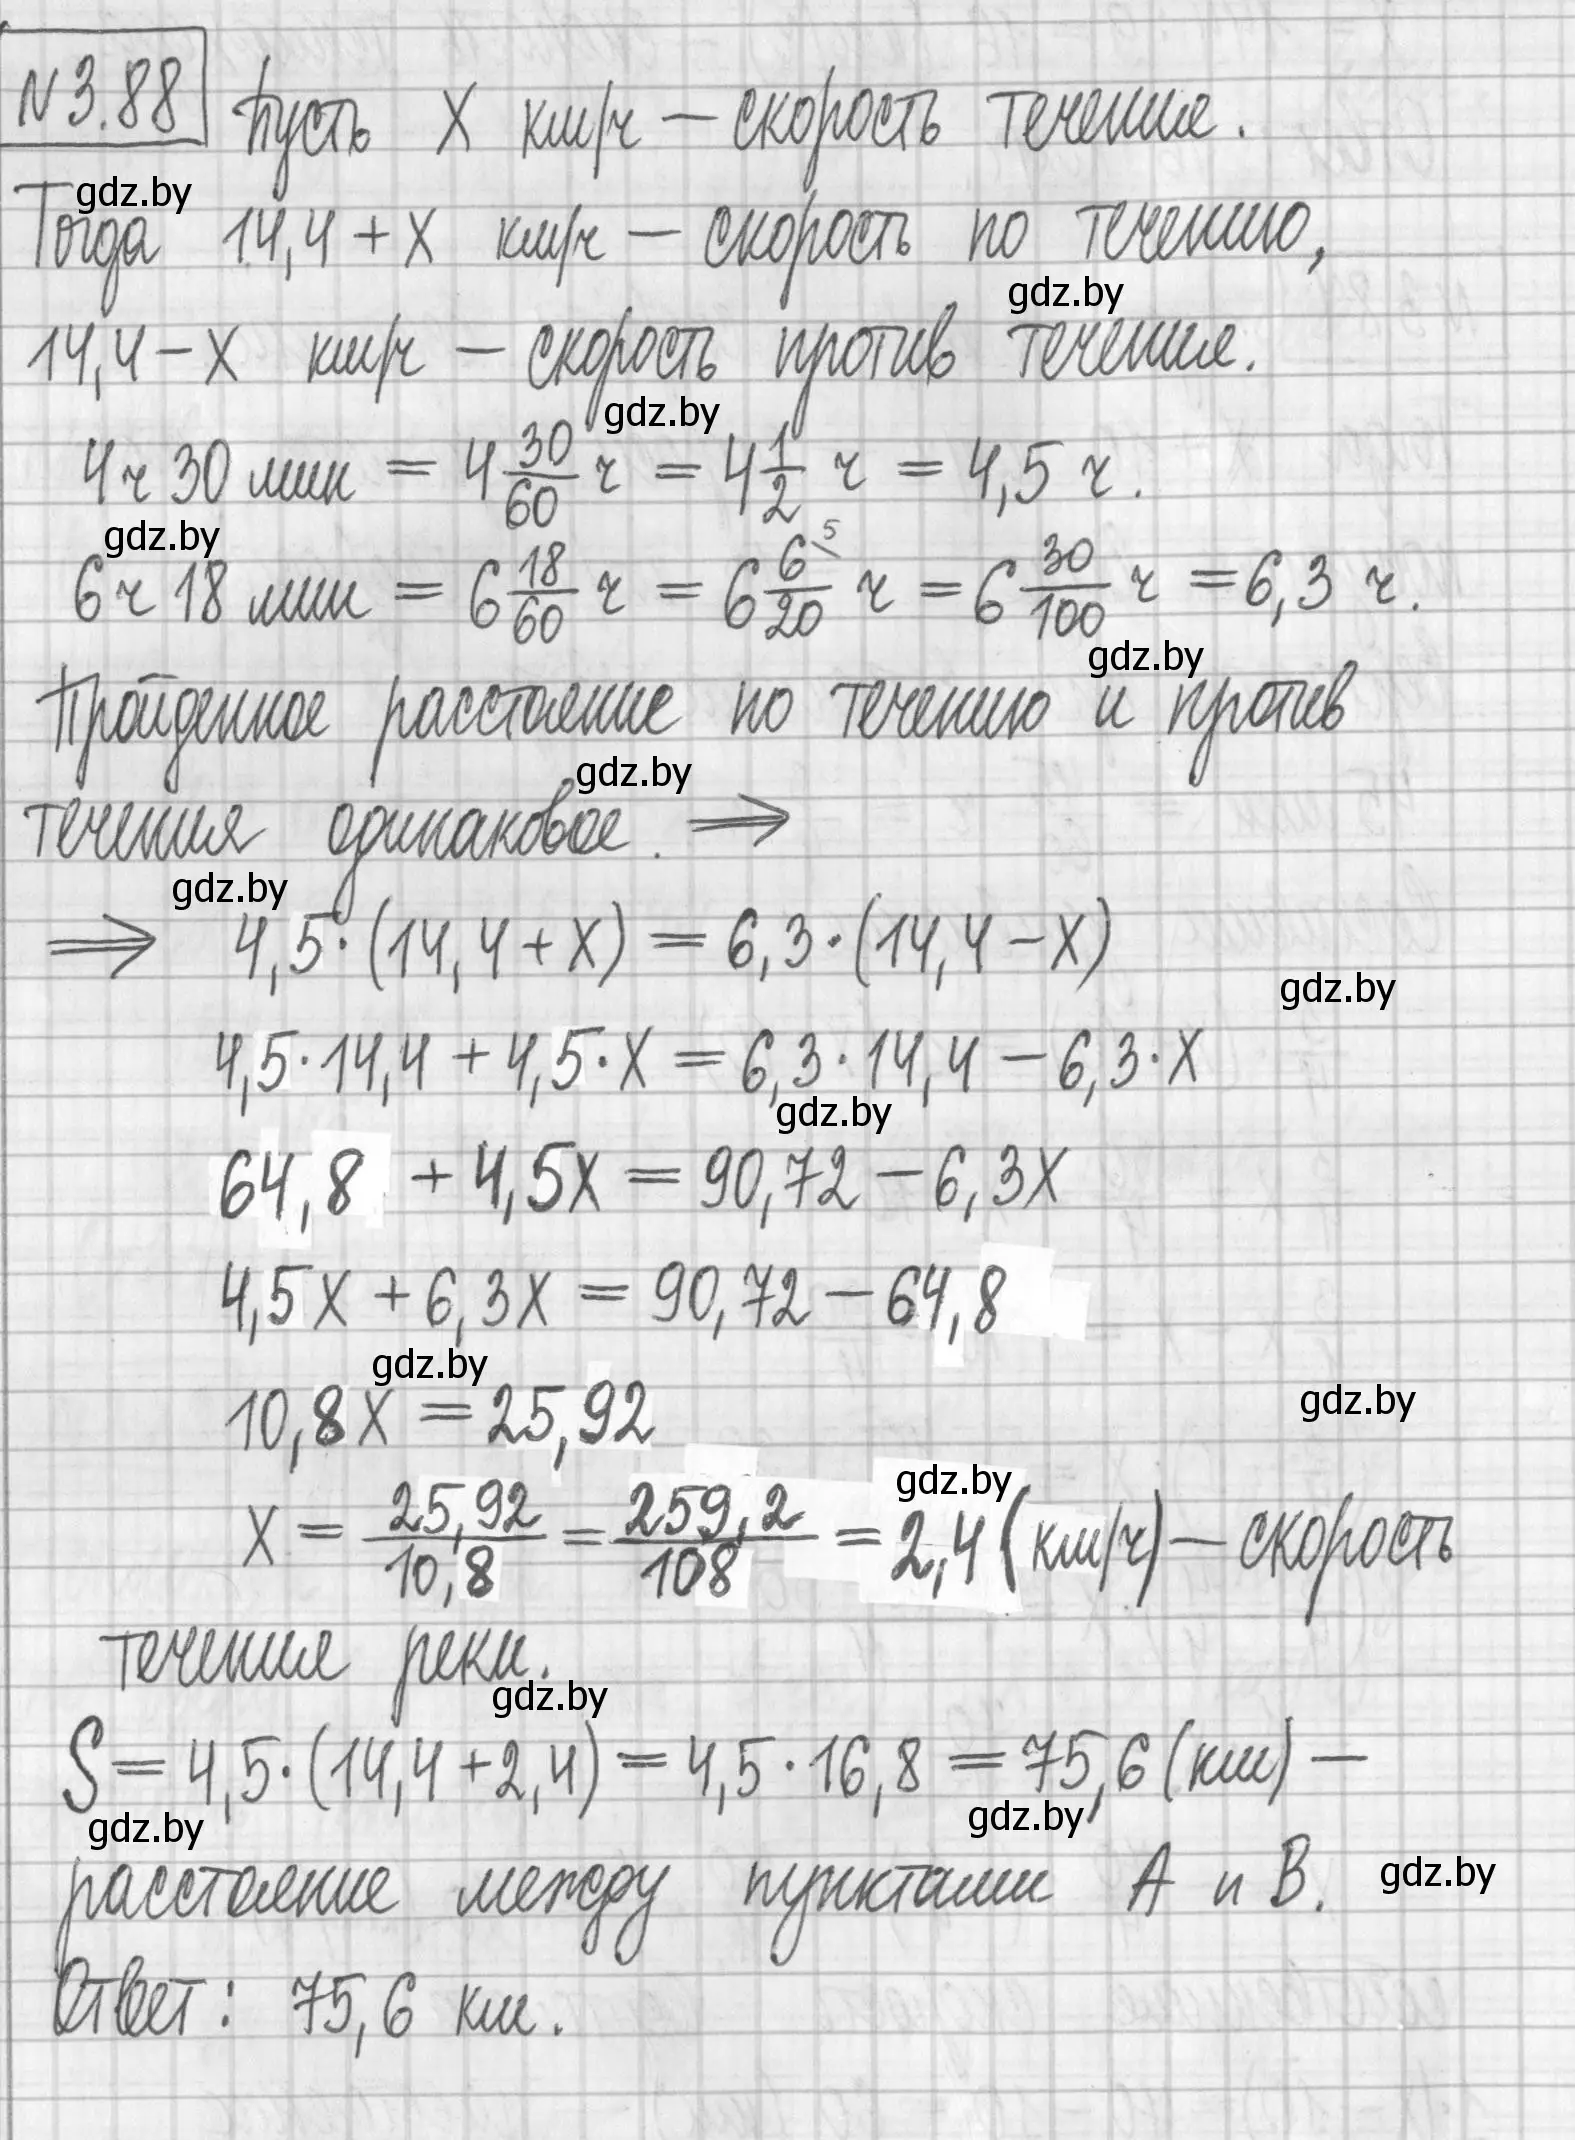 №3.88 Пусть x км/ч — скорость течения.
gdz.by
Тогда 14,4 + x км/ч — скорость по течению,
gdz.by
14,4 − x км/ч — скорость против течения.
gdz.by
4 ч 30 мин = 4 30/60 ч = 4 1/2 ч = 4,5 ч.
gdz.by
6 ч 18 мин = 6 18/60 ч = 6 6/20 \5 ч = 6 30/100 ч = 6,3 ч.
gdz.by
Пройденное расстояние по течению и против
gdz.by
течения одинаковое. ⇒
gdz.by
⇒ 4,5·(14,4 + x) = 6,3·(14,4 − x)
gdz.by
4,5·14,4 + 4,5·x = 6,3·14,4 − 6,3·x
gdz.by
64,8 + 4,5x = 90,72 − 6,3x
4,5x + 6,3x = 90,72 − 64,8
gdz.by
10,8x = 25,92
gdz.by
gdz.by
x = 25,92/10,8 = 259,2/108 = 2,4 (км/ч) — скорость
течения реки.
gdz.by
S = 4,5·(14,4 + 2,4) = 4,5·16,8 = 75,6 (км) —
gdz.by gdz.by
расстояние между пунктами A и B.
gdz.by
Ответ: 75,6 км.